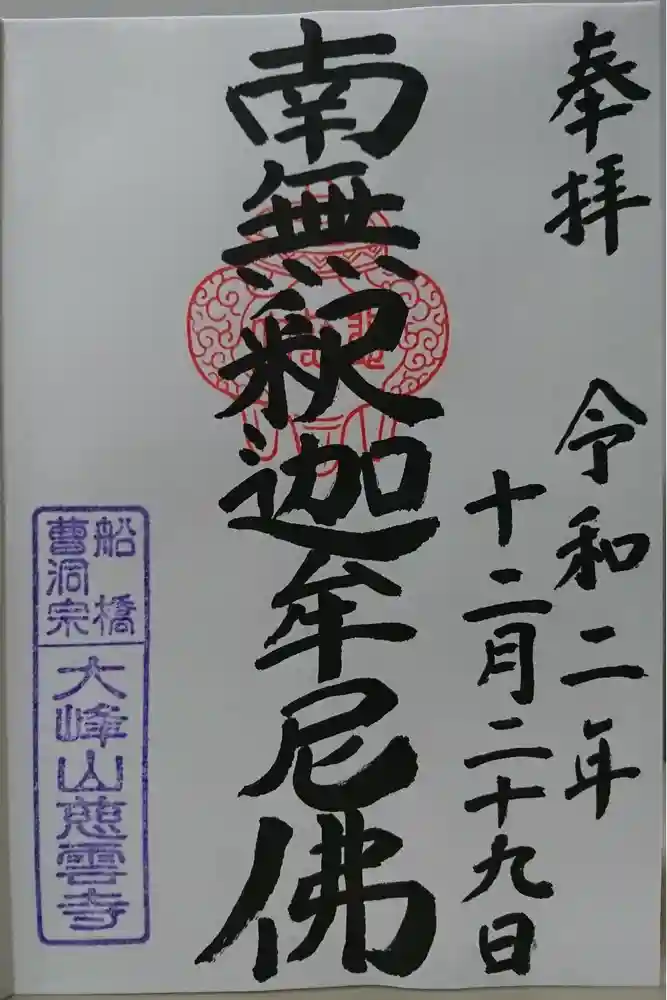 奉拝
令和二年
十二月二十九日
南無釈迦牟尼佛
船橋
曹洞宗
大峰山慈雲寺